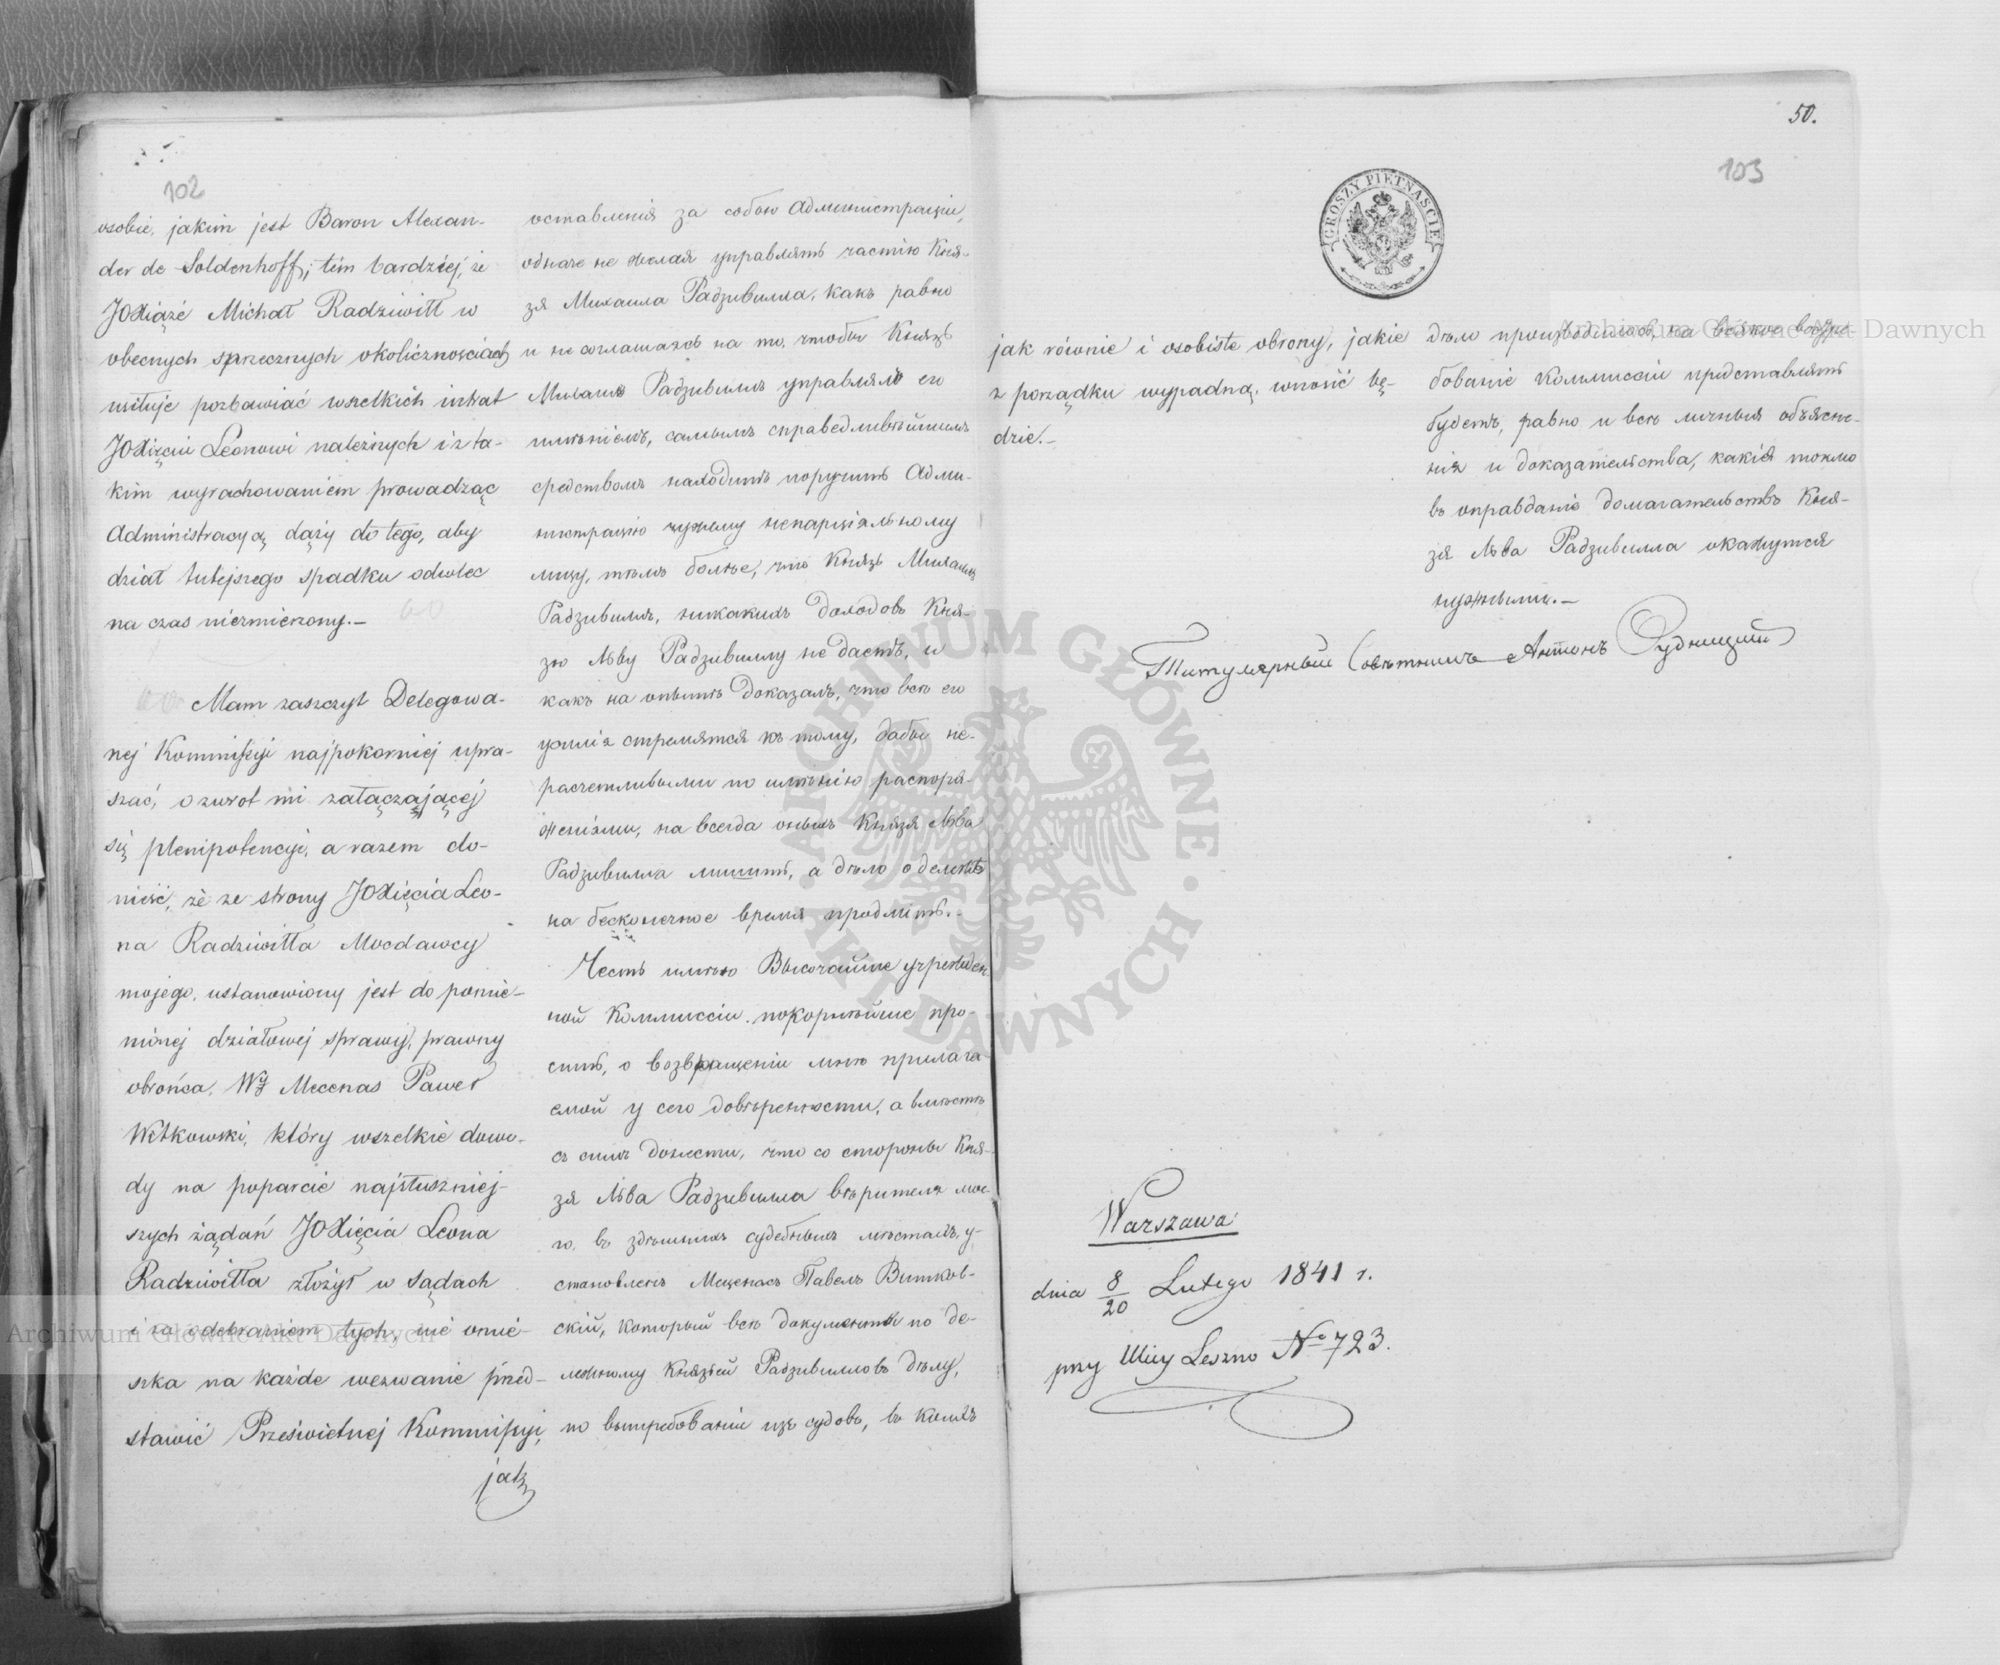 102
osobie, jakim jest Baron Alexan-
der de Soldenhoff; tém bardziéj, że
JOXiąże Michał Radziwiłł w
obecnych sprzecznych okolicznościach
usiłuje pozbawiać wszelkich intrat
JOXięcia Leonowi należnych i z ta-
kim wyrachowaniem prowadząc
Administracyą dąży do tego, aby
dział tutejszego spadku odwlec
na czas niezmierzony.—
Mam zaszczyt Delegowa-
nej Kommissyi najpokorniej upra-
szać, o zwrot mi załączającej
się plenipotencyi, a razem do-
nieść, że ze strony JOXięcia Leo-
na Radziwiłła Mocdawcy
mojego, ustanowiony jest do pomie-
nionej działowej sprawy, prawny
obrońca, Wy Mecenas Paweł
Witkowski, który wszelkie dowo-
dy na poparcie najsłuszniej-
szych żądań JOXięcia Leona
Radziwiłła złożył w Sądach
i za odebraniem tych, nie omie-
szka na każde wezwanie przed-
stawić Prześwietnej Kommissyi,
jak
оставленія за собою Администраціи,
одначе не желая управлять частію Кня-
зя Михаила Радзивилла, какъ равно
и не соглашаясь на то, чтобы Князь
Михаилъ Радзивиллъ управлялъ его
имѣніемъ, самымъ справедливѣйшимъ
средствомъ находитъ поручить Адми-
нистрацію чужему непарціяльному
лицу, тѣмъ болѣе, что Князь Михаилъ
Радзивиллъ, никакихъ доходовъ Кня-
зю Льву Радзивиллу не даетъ, и
какъ на опытѣ доказалъ, что всѣ его
усилія стремятся къ тому, дабы не-
расчетливыми по имѣнію распоря-
женіями, на всегда оныхъ Князя Льва
Радзивилла лишить, а дѣло о дележѣ
на безконечное время продлить.—
Честь имѣю Высочайше учрежден
ной Коммиссіи покорнѣйше про-
сить, о возвращеніи мнѣ прилага-
емой у сего довѣренности, а вмѣстѣ
съ симъ донести, что со стороны Кня-
зя Льва Радзивилла вѣрителя мое-
го, въ здѣшнихъ судебныхъ мѣстахъ, у-
становленъ Меценасъ Павелъ Витков-
скій, который всѣ документы по де-
лежному Князьей Радзивилловъ дѣлу,
по вытребованіи изъ судовъ, въ коихъ
50.
103
GROSZY PIĘTNAŚCIE
jak równie i osobiste obrony, jakie
z porządku wypadną, wnosić bę-
dzie.—
дѣло производилось, на всякое востре-
бованіе Коммиссіи представлять
будетъ, равно и всѣ личныя объясне-
нія и доказательства, какія токмо
въ оправданіе домагательствъ Кня-
зя Льва Радзивилла окажутся
нужными.—
Титулярный Совѣтникъ Антонъ Рудницкій
Warszawa
dnia 8/20 Lutego 1841 r.
przy Ulicy Leszno No 723.
Archiwum Główne Akt Dawnych
Archiwum Główne Akt Dawnych
ARCHIWUM GŁÓWNE AKT DAWNYCH